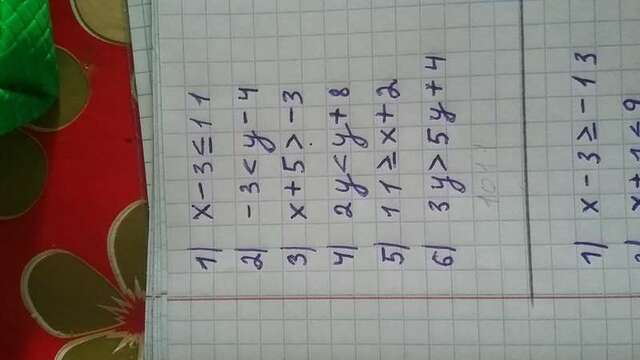 1) x - 3 ≤ 11
2) -3 < y - 4
3) x + 5 > -3
4) 2y < y + 8
5) 11 ≥ x + 2
6) 3y > 5y + 4
1) x - 3 ≥ -13